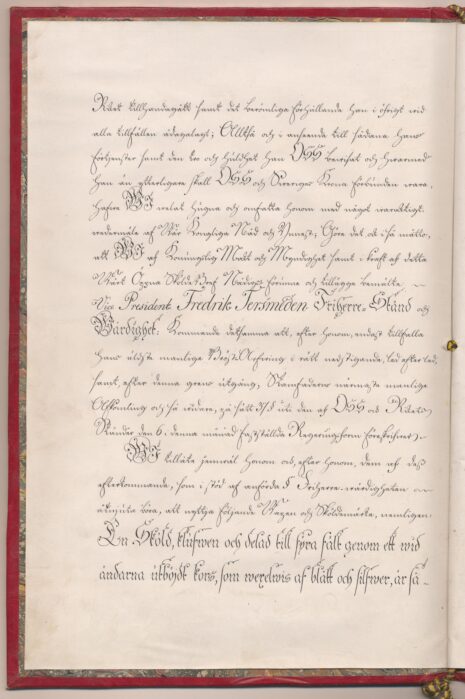 Råd tillhandagått samt det berömliga förhållande han i öfrigt wid
alla tillfällen ådagalagt; Alltså och i anseende till sådana Hans
förtjenster samt den tro och huldhet Han OSS bewisat och hwarmed
Han än ytterligare skall OSS och Sweriges Krona förbunden wara,
hafwe WI welat hugna och omfatta honom med något waraktigt
wedermäle af Wår Kongliga Nåd och Ynnest; Göre det ock i så måtto,
att WI af Konungslig Makt och Myndighet samt i kraft af detta
Wårt Öppna Sköldebref Nådigst förunna och tillägga bemälte
Vice President Fredrik Tersmeden Friherre-Stånd och
Wärdighet: Kommande detsamma att, efter honom, endast tillfalla
Hans äldste manlige Bröst Arfwinge i rätt nedstigande led efter led,
samt, efter denna grens utgång, Stamfadrens närmaste manlige
Afkomling och så widare, på sätt 37 § uti den af OSS och Riksens
Ständer den 6. denna månad faststälda Regeringsform föreskrifwer.
WI tillåte jemwäl honom och, efter honom, dem af dess
efterkommande, som i stöd af anförda § Friherre-wärdigheten
åtnjuta böra, att nyttja följande Wapen och Sköldemärke, nemligen:
En Sköld, klufwen och delad till fyra fält genom ett wid
ändarna utböjdt kors, som wexelwis af blått och silfwer, är så-